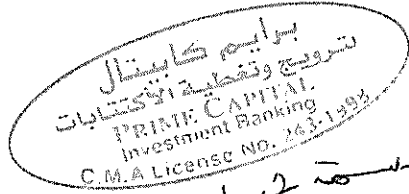 برايم كابيتال
ترويج وتغطية الاكتتابات
PRIME CAPITAL
Investment Banking
C.M.A License NO. 263-1998